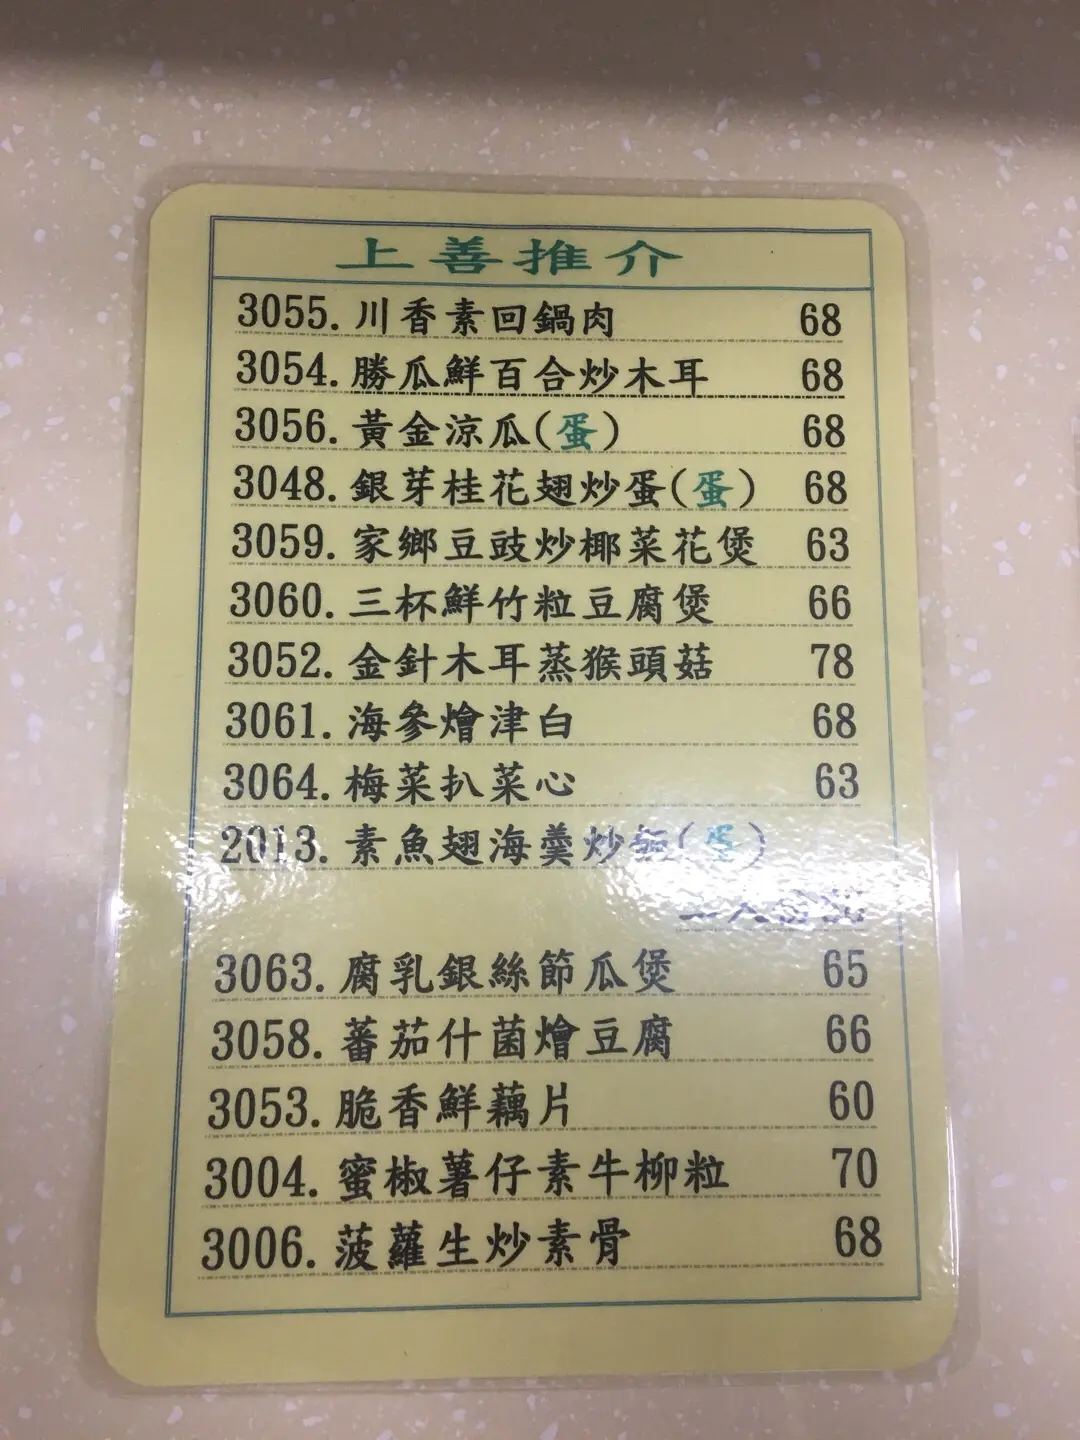 上善推介
3055.川香素回鍋肉 68
3054.勝瓜鮮百合炒木耳 68
3056.黃金涼瓜(蛋) 68
3048.銀芽桂花翅炒蛋(蛋) 68
3059.家鄉豆豉炒椰菜花煲 63
3060.三杯鮮竹粒豆腐煲 66
3052.金針木耳蒸猴頭菇 78
3061.海參燴津白 68
3064.梅菜扒菜心 63
2013.素魚翅海羹炒(蛋)
3063.腐乳銀絲節瓜煲 65
3058.蕃茄什菌燴豆腐 66
3053.脆香鮮藕片 60
3004.蜜椒薯仔素牛柳粒 70
3006.菠蘿生炒素骨 68